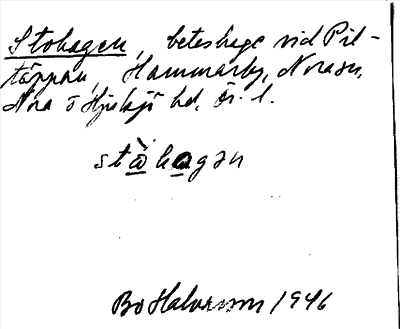 Stohagen, beteshage vid Pil-
täppan, Hammarby, Norasn,
Nora o Hjulsjö hd, Ör. l.
stὰhagən
Bo Halvarsson 1946